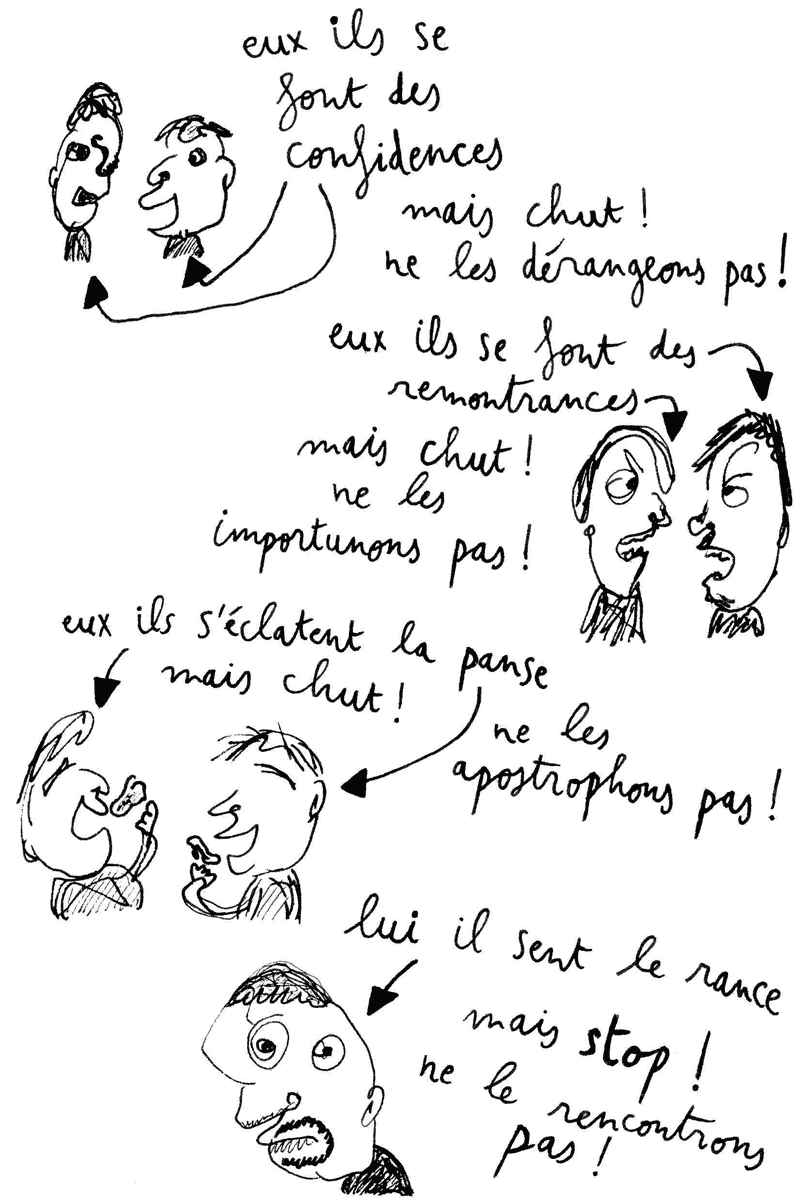 eux ils se
font des
confidences
mais chut !
ne les dérangeons pas !
eux ils se font des
remontrances
mais chut !
ne les
importunons pas !
eux ils s'éclatent la panse
mais chut !
ne les
apostrophons pas !
lui il sent le rance
mais stop !
ne le rencontrons
pas !